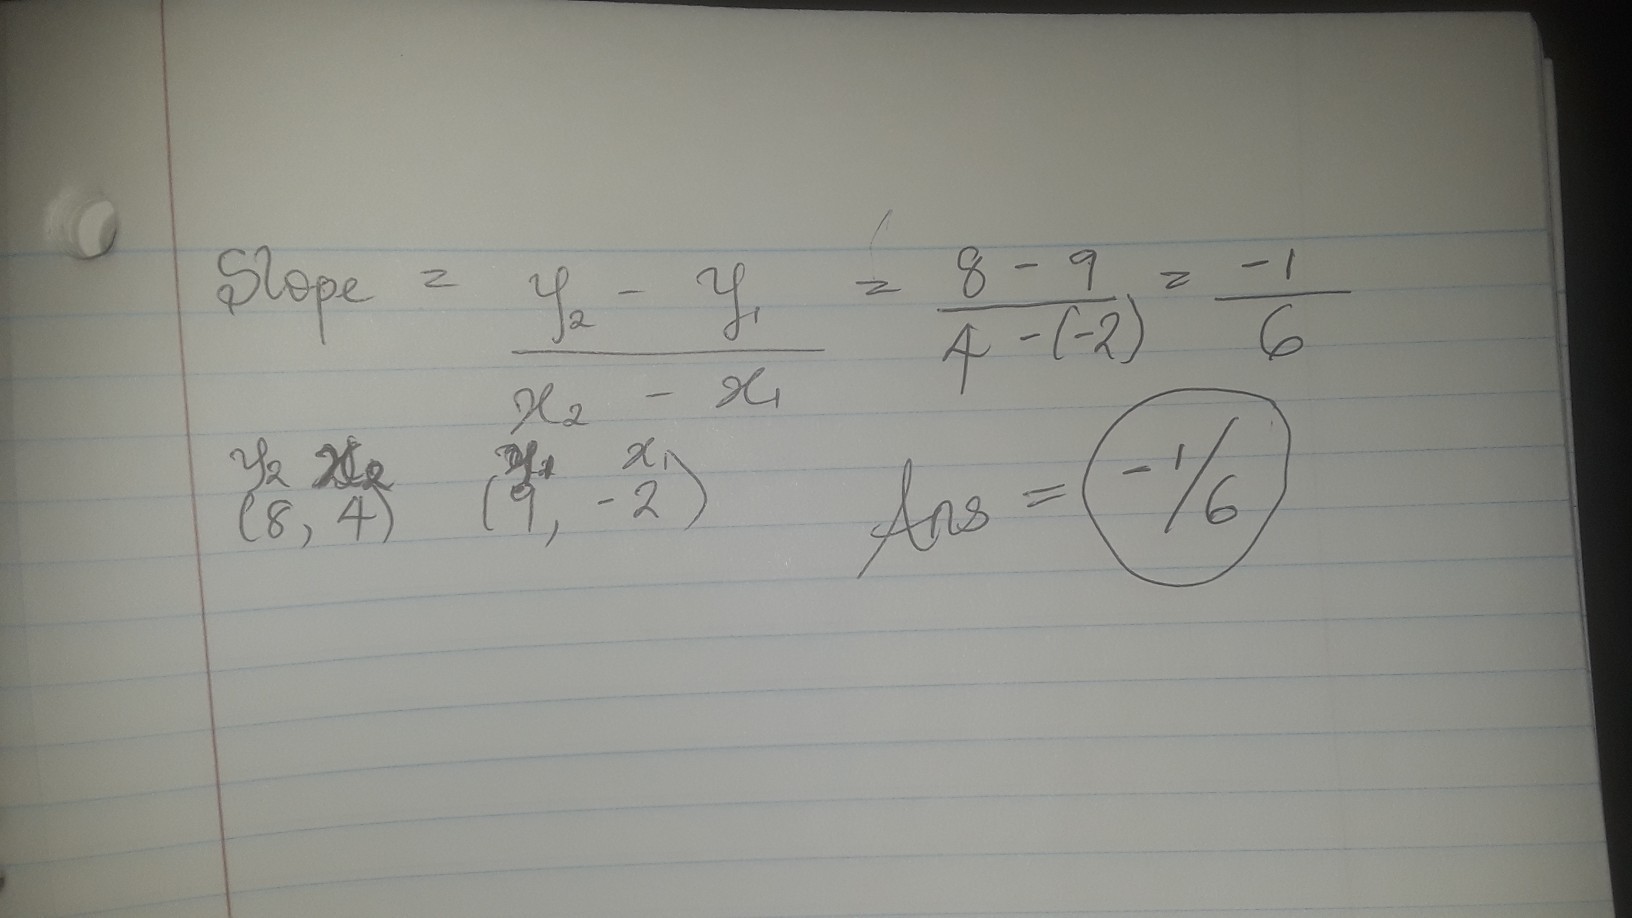 Slope = y₂ - y₁ / x₂ - x₁ = 8 - 9 / 4 - (-2) = -1 / 6
y₂ x₂ y₁ x₁
(8, 4) (9, -2)
Ans = -1/6